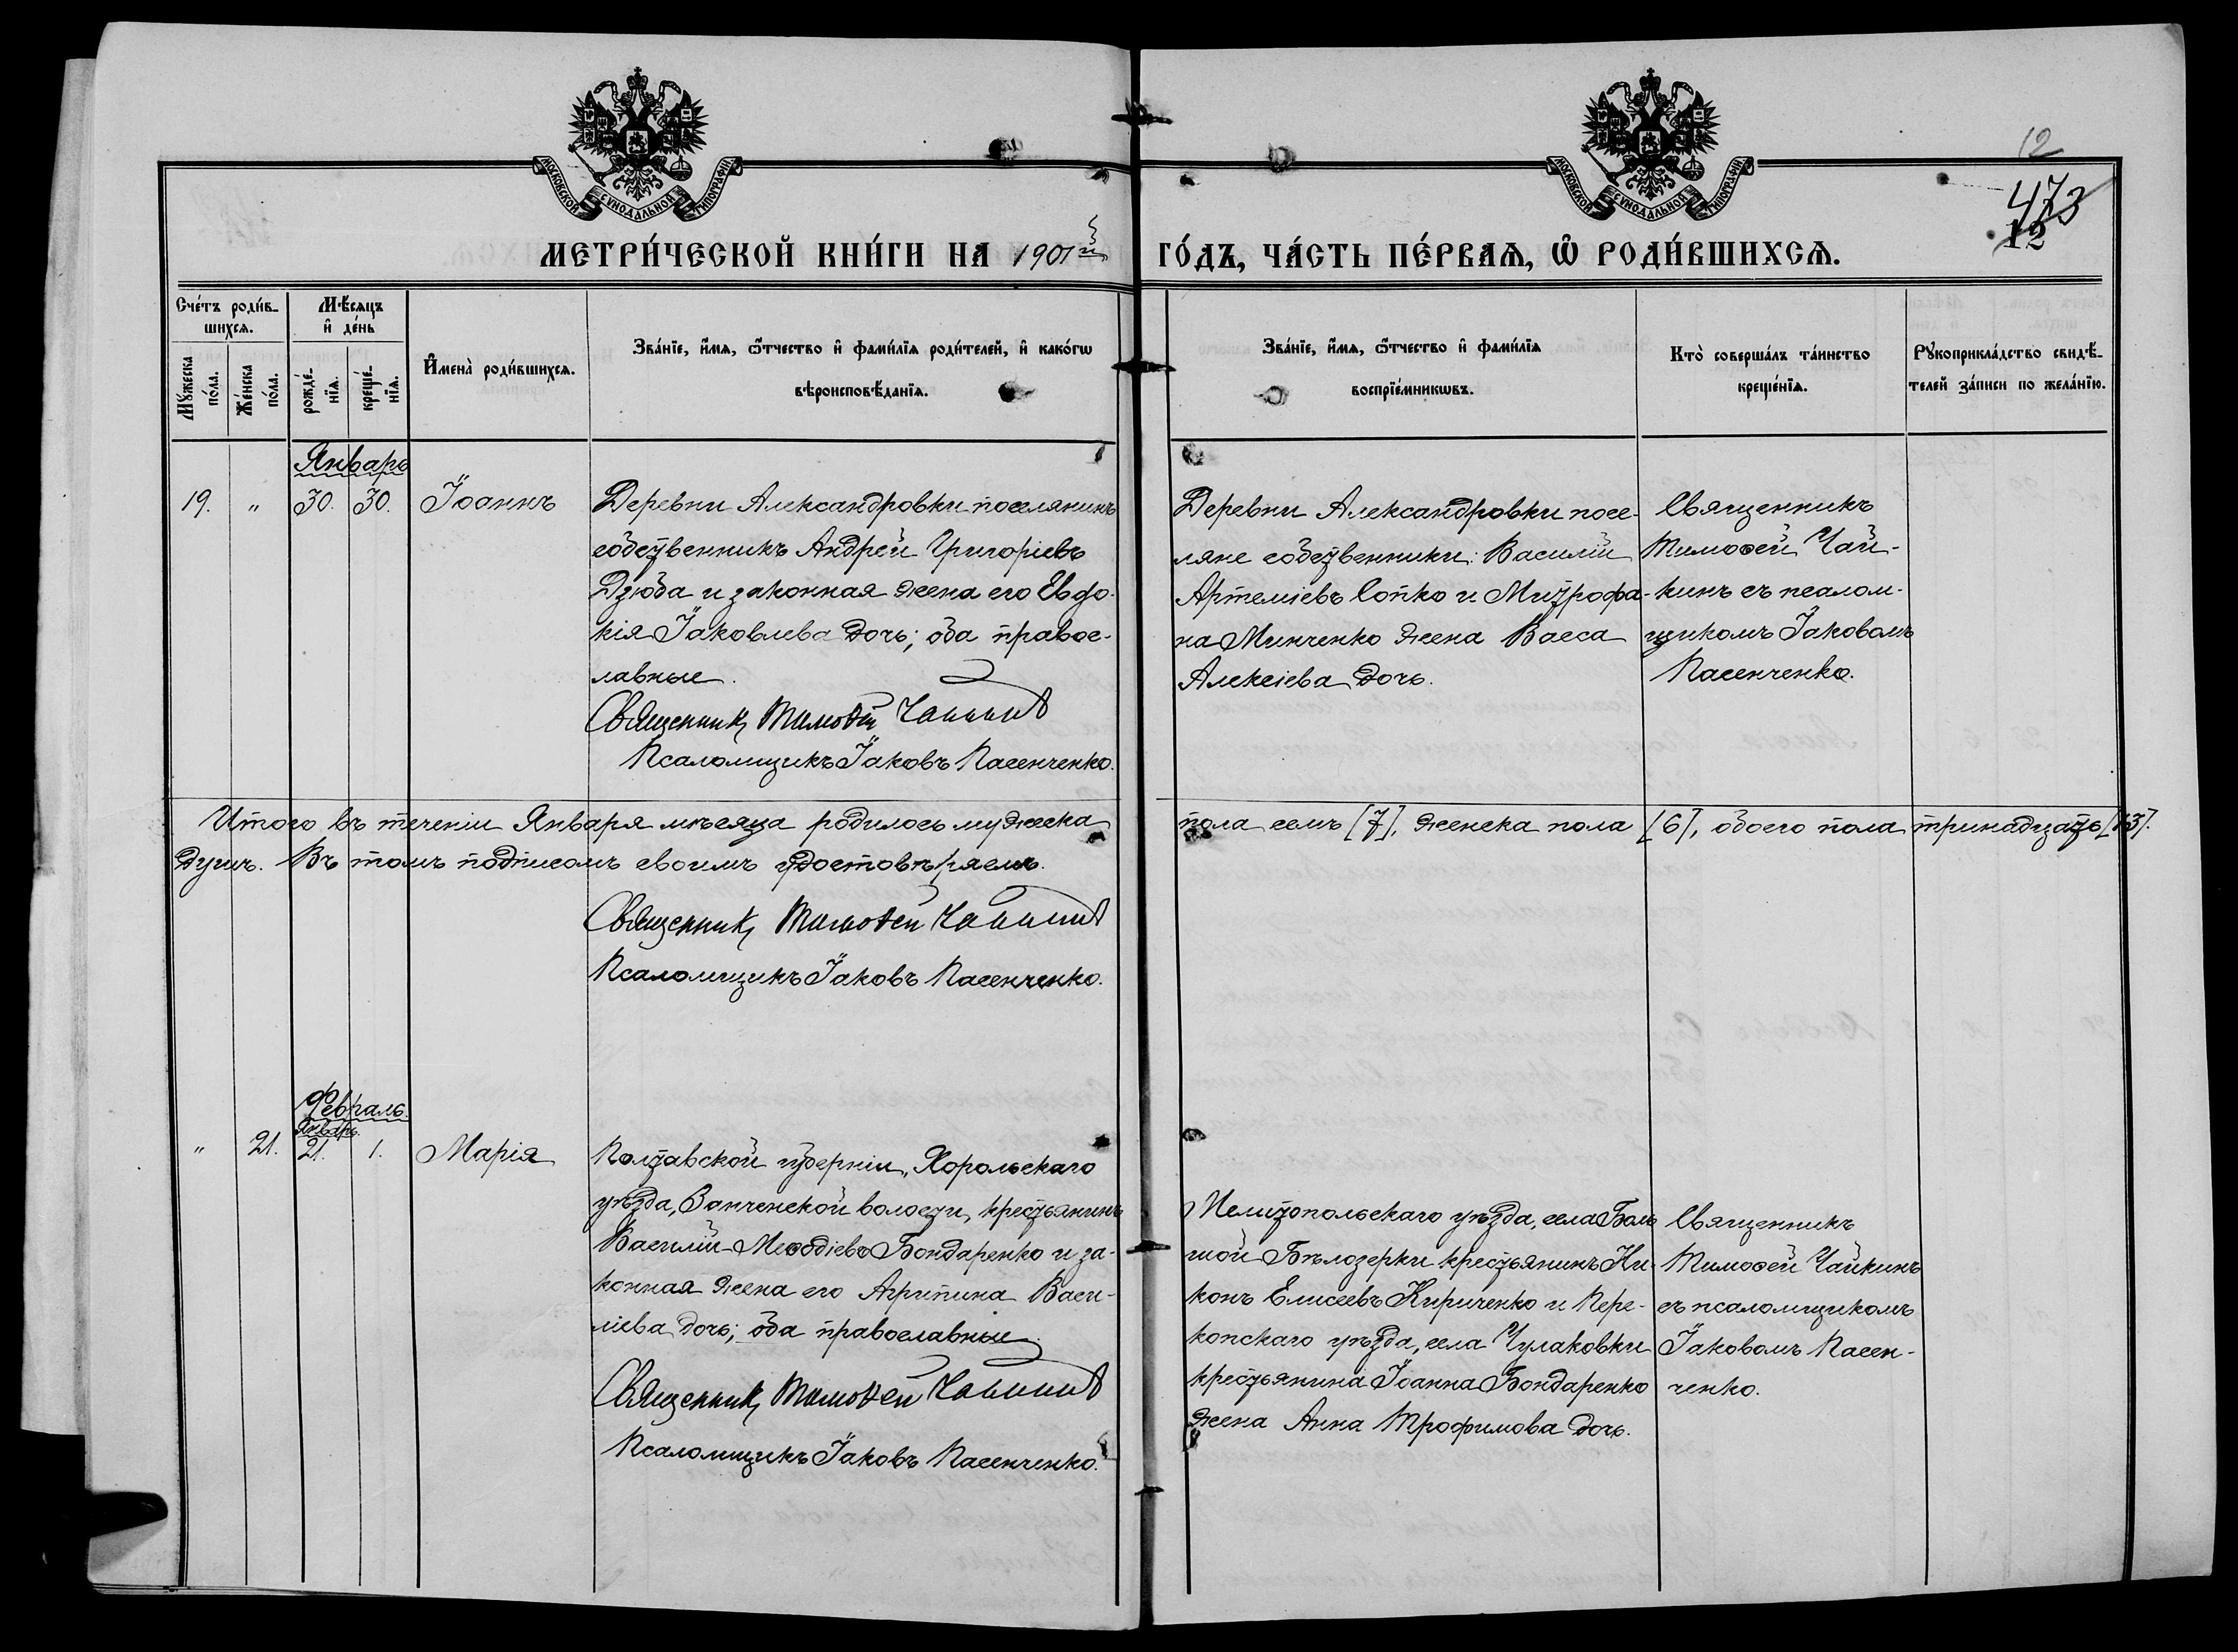 МОСКОВСКОЙ СѴНОДАЛЬНОЙ ТИПОГРАФІИ
МОСКОВСКОЙ СѴНОДАЛЬНОЙ ТИПОГРАФІИ
12
473
12
МЕТРИ́ЧЕСКОЙ КНИ́ГИ НА 1901й ГО́ДЪ, ЧА́СТЬ ПЕ́РВАѦ, Ѡ҆ РОДИ́ВШИХСѦ.
Сче́тъ роди́в-
шихсѧ.
Мꙋ́жеска по́ла.
Же́нска по́ла.
Мѣ́сѧцъ
и҆ де́нь
рожде́-
нїѧ.
креще́-
нїѧ.
И҆мена̀ роди́вшихсѧ.
Зва́нїе, и҆́мѧ, ѻ҆́тчество и҆ фами́лїѧ роди́телей, и҆ како́гѡ
вѣроисповѣ́данїѧ.
Зва́нїе, и҆́мѧ, ѻ҆́тчество и҆ фами́лїѧ
воспрїе́мникѡвъ.
Кто̀ соверша́лъ та́инство
креще́нїѧ.
Рꙋкоприкла́дство свидѣ́-
телей за́писи по жела́нїю.
Январь
19. " 30. 30. Іоаннъ
Деревни Александровки поселянинъ
собственникъ Андрей Григоріевъ
Дзюба и законная жена его Евдо-
кія Іаковлева дочь; оба правос-
лавные.
Священникъ Тимоѳей Чайкинъ
Псаломщикъ Іаковъ Пасенченко.
Деревни Александровки посе-
ляне собственники: Василій
Артеміевъ Сопко и Митрофа-
на Минченко жена Васса
Алексіева дочь.
Священникъ
Тимоѳей Чай-
кинъ съ псалом-
щикомъ Іаковомъ
Пасенченко.
Итого въ теченіи Января мѣсяца родилось мужеска пола семь [7], женска пола [6], обоего пола тринадцать [13].
душъ. Въ томъ подписомъ своимъ удостовѣряемъ.
Священникъ Тимоѳей Чайкинъ
Псаломщикъ Іаковъ Пасенченко.
Февраль.
Январь.
" 21. 21. 1. Марія
Полтавской губерніи, Хорольскаго
уѣзда, волости, крестьянинъ
Василій Меѳодіевъ Бондаренко и за-
конная жена его Агрипина Васи-
ліева дочь; оба православные.
Священникъ Тимоѳей Чайкинъ
Псаломщикъ Іаковъ Пасенченко.
Мелитопольскаго уѣзда, села Боль
шой Бѣлозерки крестьянинъ Ни-
конъ Елисеевъ Кириченко и Пере-
копскаго уѣзда, села Чулаковки
крестьянина Іоанна Бондаренко
жена Анна Трофимова дочь.
Священникъ
Тимоѳей Чайкинъ
съ псаломщикомъ
Іаковомъ Пасен-
ченко.